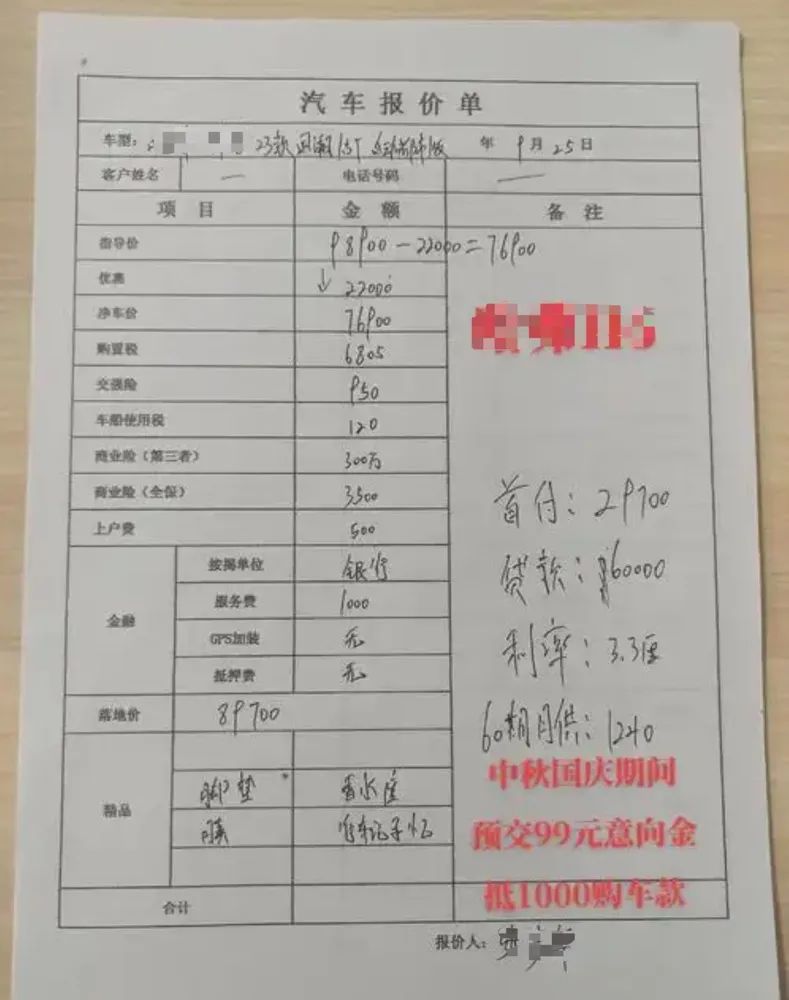 汽车报价单
车型: 23款 国潮 1.5T 自动 版 年 9月25日
客户姓名 — 电话号码 —
项目 金额 备注
指导价 98900-22000=76900
优惠 ↓22000
净车价 76900
购置税 6805
交强险 950
车船使用税 120
商业险(第三者) 300万
商业险(全保) 3500
上户费 500
首付: 29700
金融
按揭单位 银行
贷款: 60000
服务费 1000
GPS加装 无
利率: 3.3厘
抵押费 无
落地价 89700
60期月供: 1240
精品
脚垫 香水座
膜 行车记录仪
中秋国庆期间
预交99元意向金
抵1000购车款
合计
报价人: